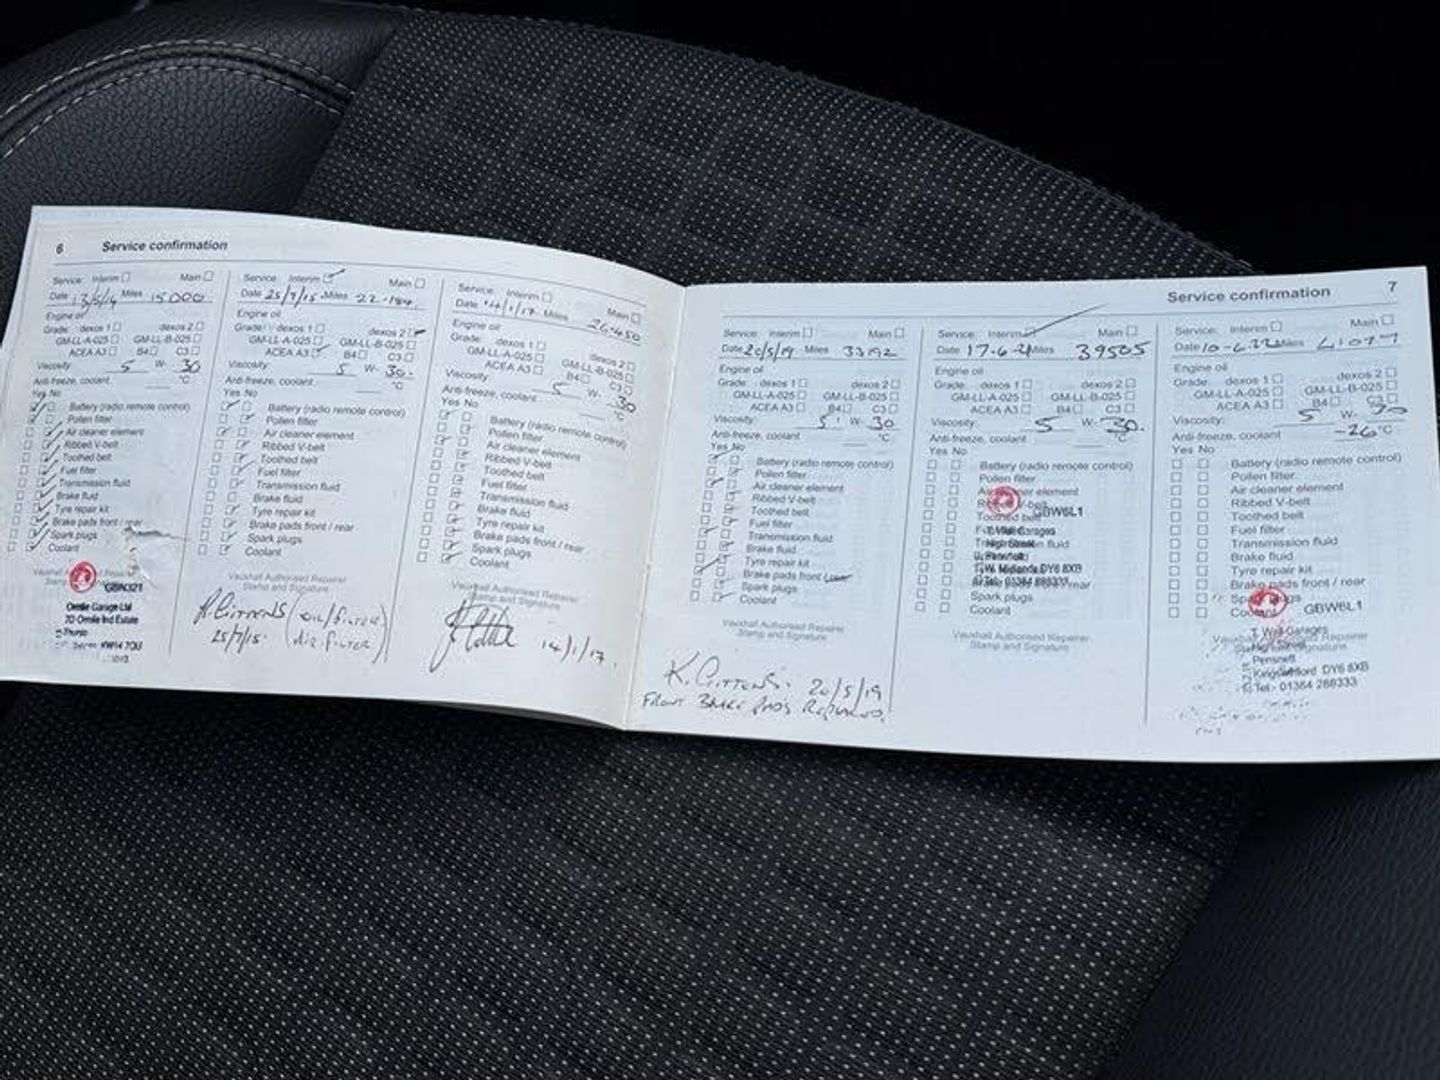 6 Service confirmation
Service: Interim Main
Date 13/5/14 Miles 15000
Engine oil
Grade: dexos 1 dexos 2
GM-LL-A-025 GM-LL-B-025
ACEA A3 B4 C3
Viscosity 5 W- 30
Anti-freeze, coolant °C
Yes No
Battery (radio remote control)
Pollen filter
Air cleaner element
Ribbed V-belt
Toothed belt
Fuel filter
Transmission fluid
Brake fluid
Tyre repair kit
Brake pads front / rear
Spark plugs
Coolant
Ormlie Garage Ltd
7D Ormlie Ind Estate
Thurso
KW14 7QU
Service: Interim Main
Date 25/7/15 Miles 22-184
Engine oil
Grade: dexos 1 dexos 2
GM-LL-A-025 GM-LL-B-025
ACEA A3 B4 C3
Viscosity 5 W- 30.
Anti-freeze, coolant °C
Yes No
Battery (radio remote control)
Pollen filter
Air cleaner element
Ribbed V-belt
Toothed belt
Fuel filter
Transmission fluid
Brake fluid
Tyre repair kit
Brake pads front / rear
Spark plugs
Coolant
Vauxhall Authorised Repairer
Stamp and Signature
(OIL/FILTER)
25/7/15. (AIR FILTER)
Service: Interim Main
Date 14/1/17 Miles 26-450
Engine oil
Grade: dexos 1 dexos 2
GM-LL-A-025 GM-LL-B-025
ACEA A3 B4 C3
Viscosity 5 W- 30
Anti-freeze, coolant °C
Yes No
Battery (radio remote control)
Pollen filter
Air cleaner element
Ribbed V-belt
Toothed belt
Fuel filter
Transmission fluid
Brake fluid
Tyre repair kit
Brake pads front / rear
Spark plugs
Coolant
Vauxhall Authorised Repairer
Stamp and Signature
14/1/17.
Service confirmation 7
Service: Interim Main
Date 20/5/19 Miles 33192
Engine oil
Grade: dexos 1 dexos 2
GM-LL-A-025 GM-LL-B-025
ACEA A3 B4 C3
Viscosity 5 W- 30
Anti-freeze, coolant °C
Yes No
Battery (radio remote control)
Pollen filter
Air cleaner element
Ribbed V-belt
Toothed belt
Fuel filter
Transmission fluid
Brake fluid
Tyre repair kit
Brake pads front / rear
Spark plugs
Coolant
Vauxhall Authorised Repairer
Stamp and Signature
K. 20/5/19
FRONT BRAKE PADS REPLACED.
Service: Interim Main
Date 17-6-21 Miles 39505
Engine oil
Grade: dexos 1 dexos 2
GM-LL-A-025 GM-LL-B-025
ACEA A3 B4 C3
Viscosity 5 W- 30.
Anti-freeze, coolant °C
Yes No
Battery (radio remote control)
Pollen filter
element
GBW6L1
Toothed belt
T Wall Garages
High Street
Pensnett
W. Midlands DY6 8XB
Tel: 01384 288333
Spark plugs
Coolant
Vauxhall Authorised Repairer
Stamp and Signature
Service: Interim Main
Date 10-6-22 Miles 41077
Engine oil
Grade: dexos 1 dexos 2
GM-LL-A-025 GM-LL-B-025
ACEA A3 B4 C3
Viscosity: 5 W- 30
Anti-freeze, coolant -26 °C
Yes No
Battery (radio remote control)
Pollen filter
Air cleaner element
Ribbed V-belt
Toothed belt
Fuel filter
Transmission fluid
Brake fluid
Tyre repair kit
Brake pads front / rear
Spark plugs
Coolant GBW6L1
T Wall Garages
Pensnett
Kingswinford DY6 8XB
Tel: 01384 288333